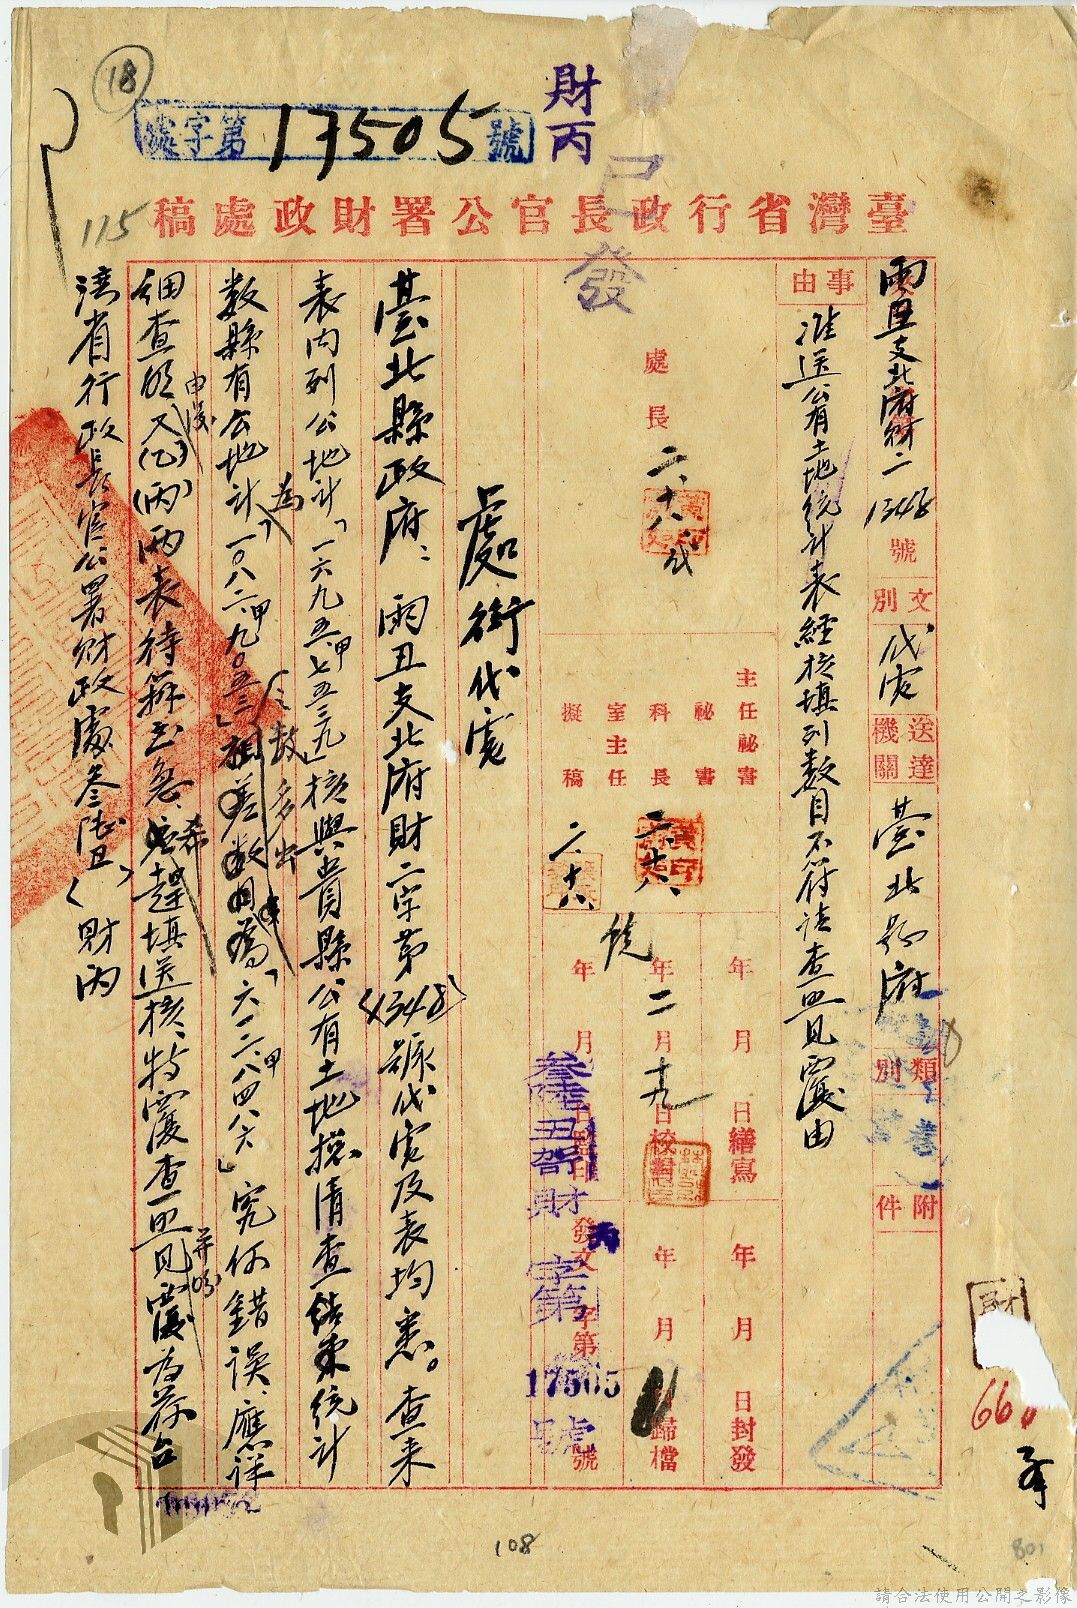 18
處字第17505號
財丙
已發
115
臺灣省行政長官公署財政處稿
雨丑支北府財二1348號
文別
代電
送達機關
臺北縣政府
類別
附件
事由
准送公有土地統計表經核填列數目不符請查照見覆由
處長
二、十八
主任秘書
秘書
科長
室主任
擬稿
二、十八
二、十八
年月日繕寫
年二月十九日校對
年月日監印
年月日封發
年月日歸檔
發文字第號
叁陸丑
財丙
字第17505號
處銜代電
臺北縣政府:雨丑支北府財二字第(1348)號代電及表均悉。查來
表內列公地計「一六九五甲七五三九」核與貴縣公有土地攏清查結束統計
數縣有公地計為「一〇八二甲九〇五三」相差數多出「六一二甲八四八六」究何錯誤、應詳
細查明又(乙)(丙)兩表待辦至急、希趕填送核、特電查照見覆為荷台
灣省行政長官公署財政處叁陸丑()財丙
財
660
108
801
請合法使用公開之影像